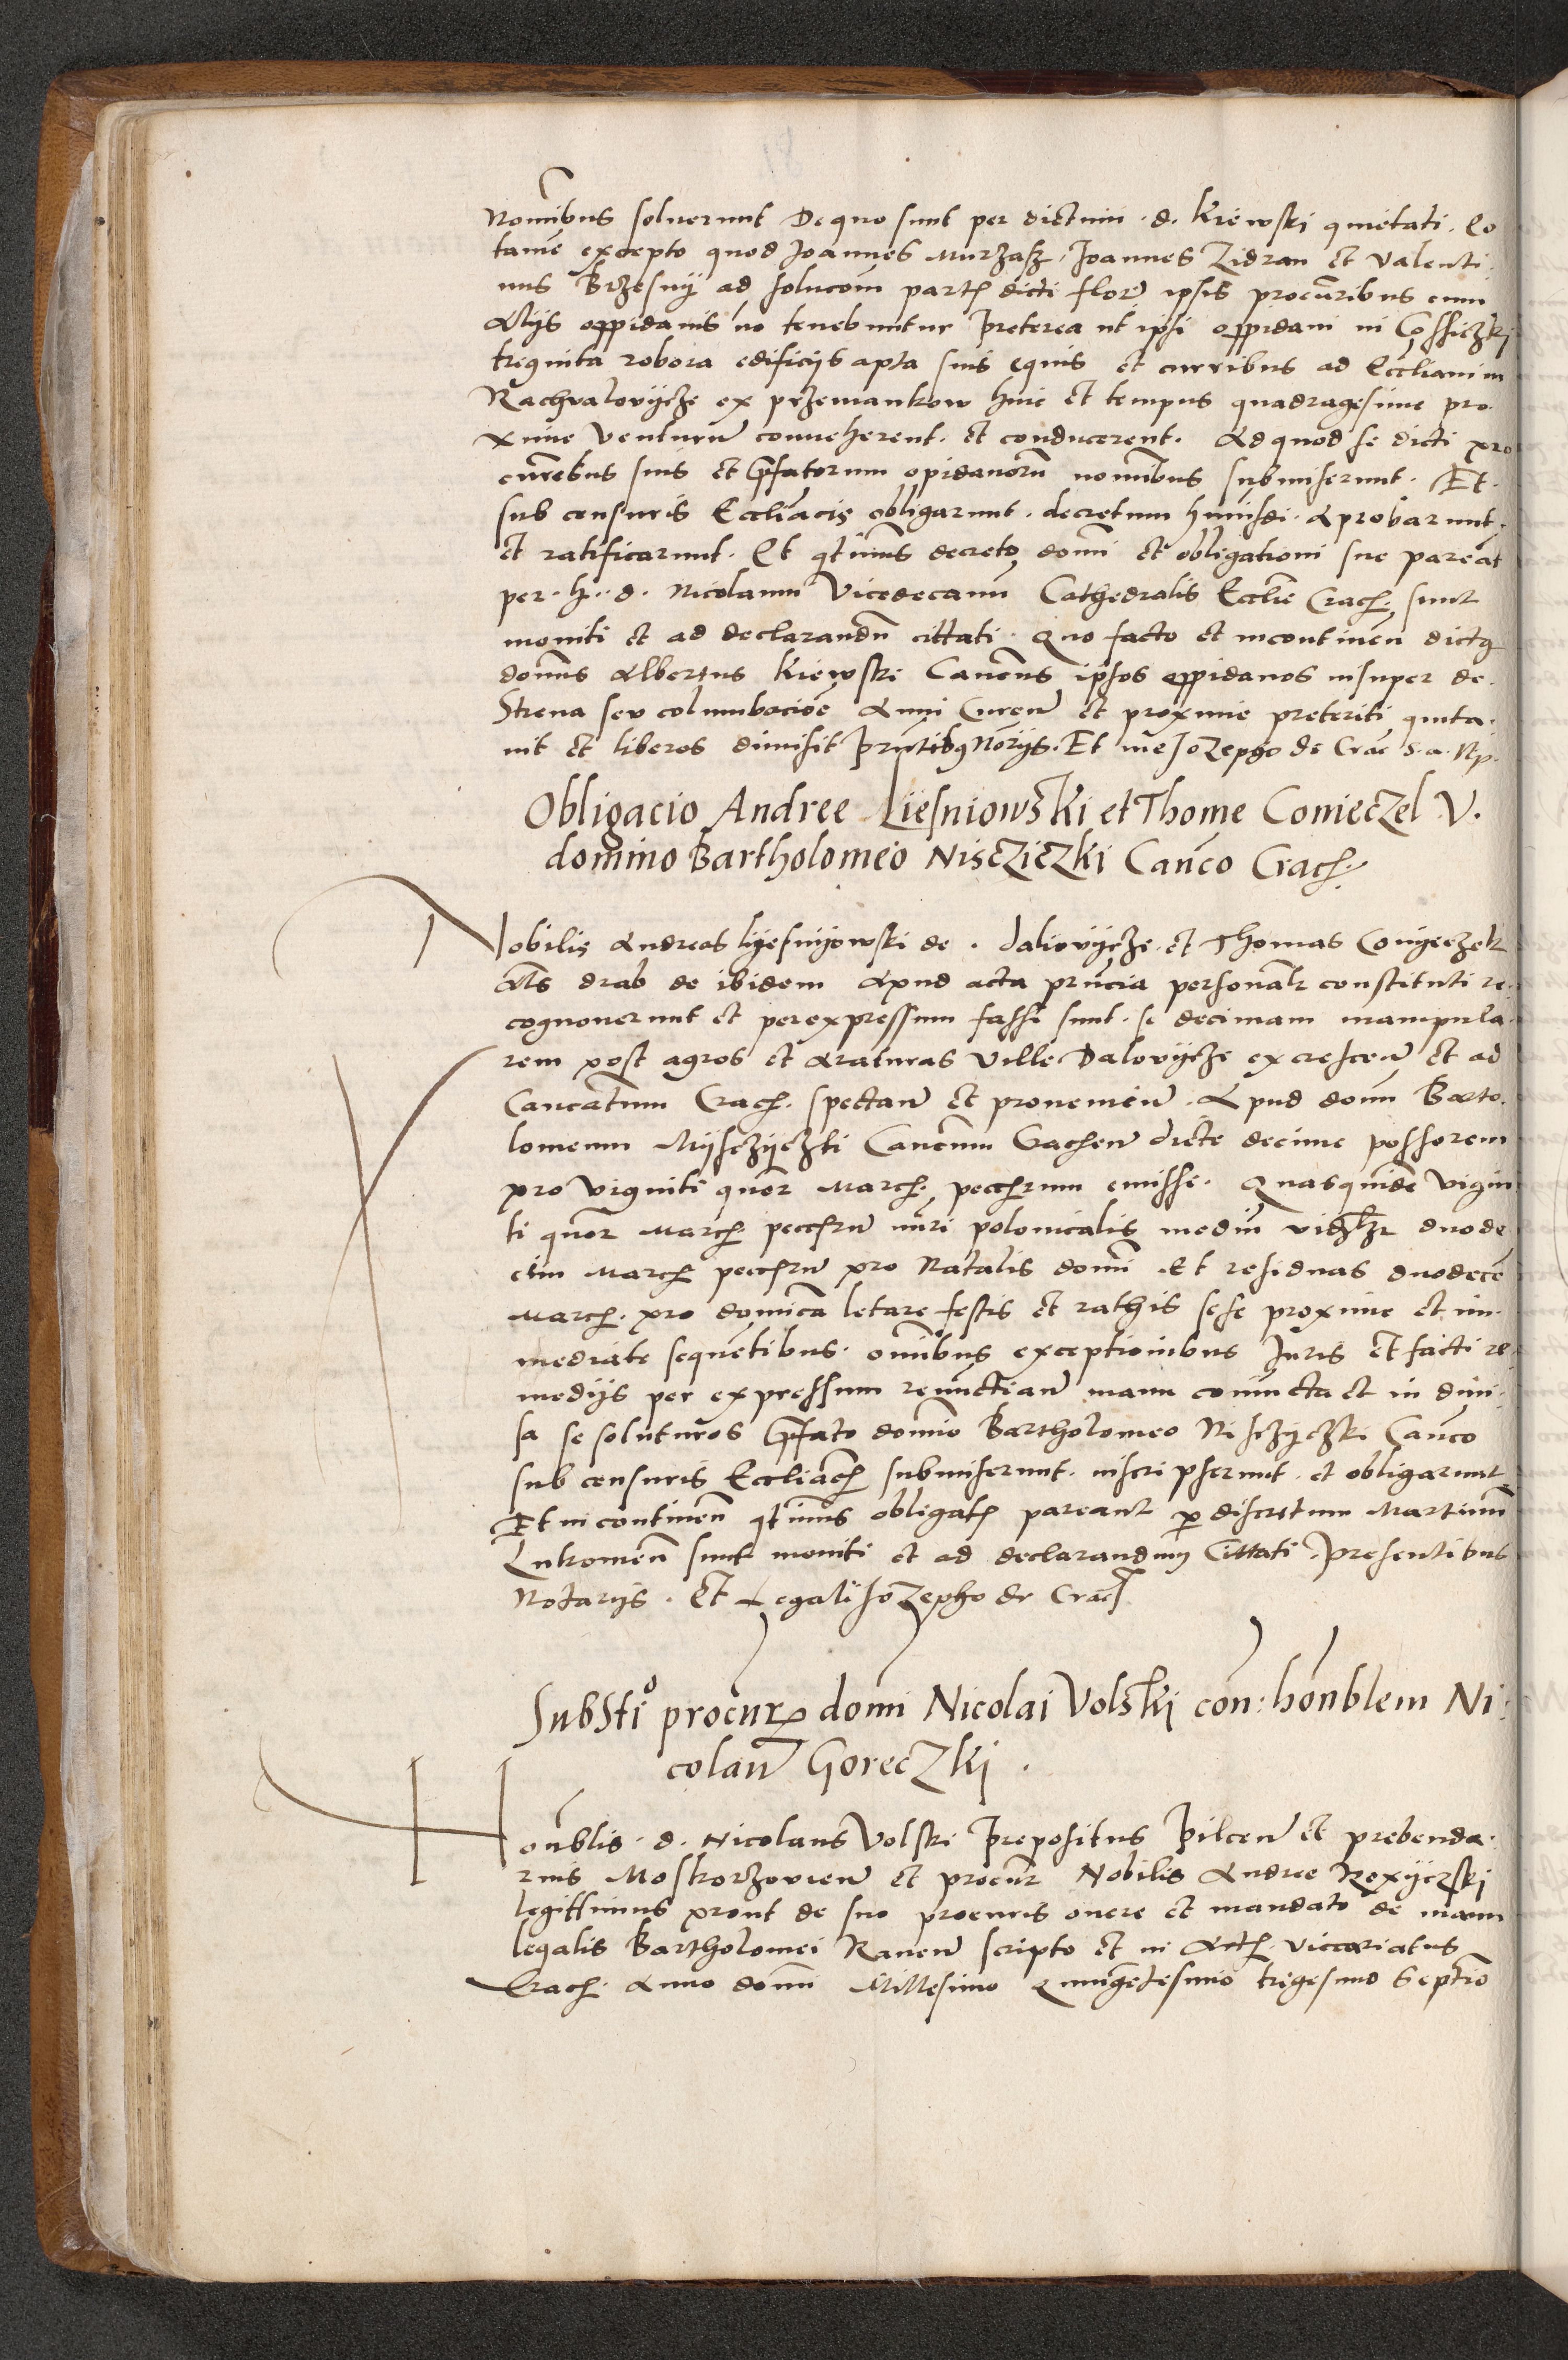 Nominbus soluerunt De quo sunt per dictum d. Kiewski quietati. Eo
tame excepto quod Joannes Murzasz, Joannes Zidran et Valenti
nus Brzesny ad solucom partis dicti flore ipsis procuribus cum
Alijs oppidanis no tenebuntur Preterea ut ipsi oppidani in
triginta robora edificijs apta suis equis et curribus ad Eccliam in
Rachvalovycze ex przemankow hinc et tempus quadragesime pro
xime Venturum conueherent. et conducerent. Ad quod se dicti pro
curebus suis et prefatorum opidanoru nominbus submiserunt. Et
sub censuris Eccliacis obligarunt. decretum huiusdi. Aprobarunt.
et ratificarunt. Et qtinus decreto domi et obligationi sue pareat
per. h. d. Nicolaum Vicedecanu Cathedralis Ecclie Crach. sunt
moniti et ad declarandu cittati. Quo facto et incontinen dictus
domus Albertus Kiewski Canucus ipsos oppidanos insuper de
Strena seu columbacioe Anni Curen et proxime preteriti quita
uit et liberos dimisit Prntibus Norijs. Et me Jozepho de Crac s. a. Np.
Obligacio Andree Liesniowski et Thome Conieczel V.
domino Bartholomeo Niscziczki Canco Crach.
Nobilis Andreas lyesnyowski de. daliovycze. et Thomas Conyeczek
Als drab de ibidem Apud acta pruncia personalr constituti re
cognouerunt et per expressum fassi sunt. se decimam manipula
rem post agros et Araturas Ville Dalovycze excrescen et ad
Canucatum Crach. spectan et prouenien. Apud domu Barto
lomeum Myszyczki Canucum Crachen dicte decime possorem
pro Viginti quor March. peccherum emisse. Quasquide Vigin
ti quor March. pecchru nuri polonicalis mediu vidzlzt duode
cim March pecchru pro Natalis domi Et residuas duodece
March. pro dominca letare festis et rathis sese proxime et im
mediate sequentibus. omnibus exceptionibus Juris et facti re
medijs per expressum renunctian manu coniuncta et in diui
sa se soluturos Prefato domino Bartholomeo Nisczyczki Canco
sub censuris Eccliach submiserunt. inscripserunt. et obligarunt
Et in continen qtinus obligats pareant per discretum Martinu
Lukomen sunt moniti et ad declarandum Cittati. Presentibus
Notarijs. Et Legali Jozepho de Crach
Substio procur domi Nicolai Volski con: honblem Ni
colau Goreczki.
Honblis. d. Nicolaus Volski Prepositus Pilcen et prebenda
rius Moskorzovien et procur Nobilis Andree Rexyczski
legittimus prout de suo procuris onere et mandato de manu
legalis Bartholomei Rauen scripto et in Acth. viccariatus
Crach. Anno domi Millesimo Quingetesimo trigesimo Septio